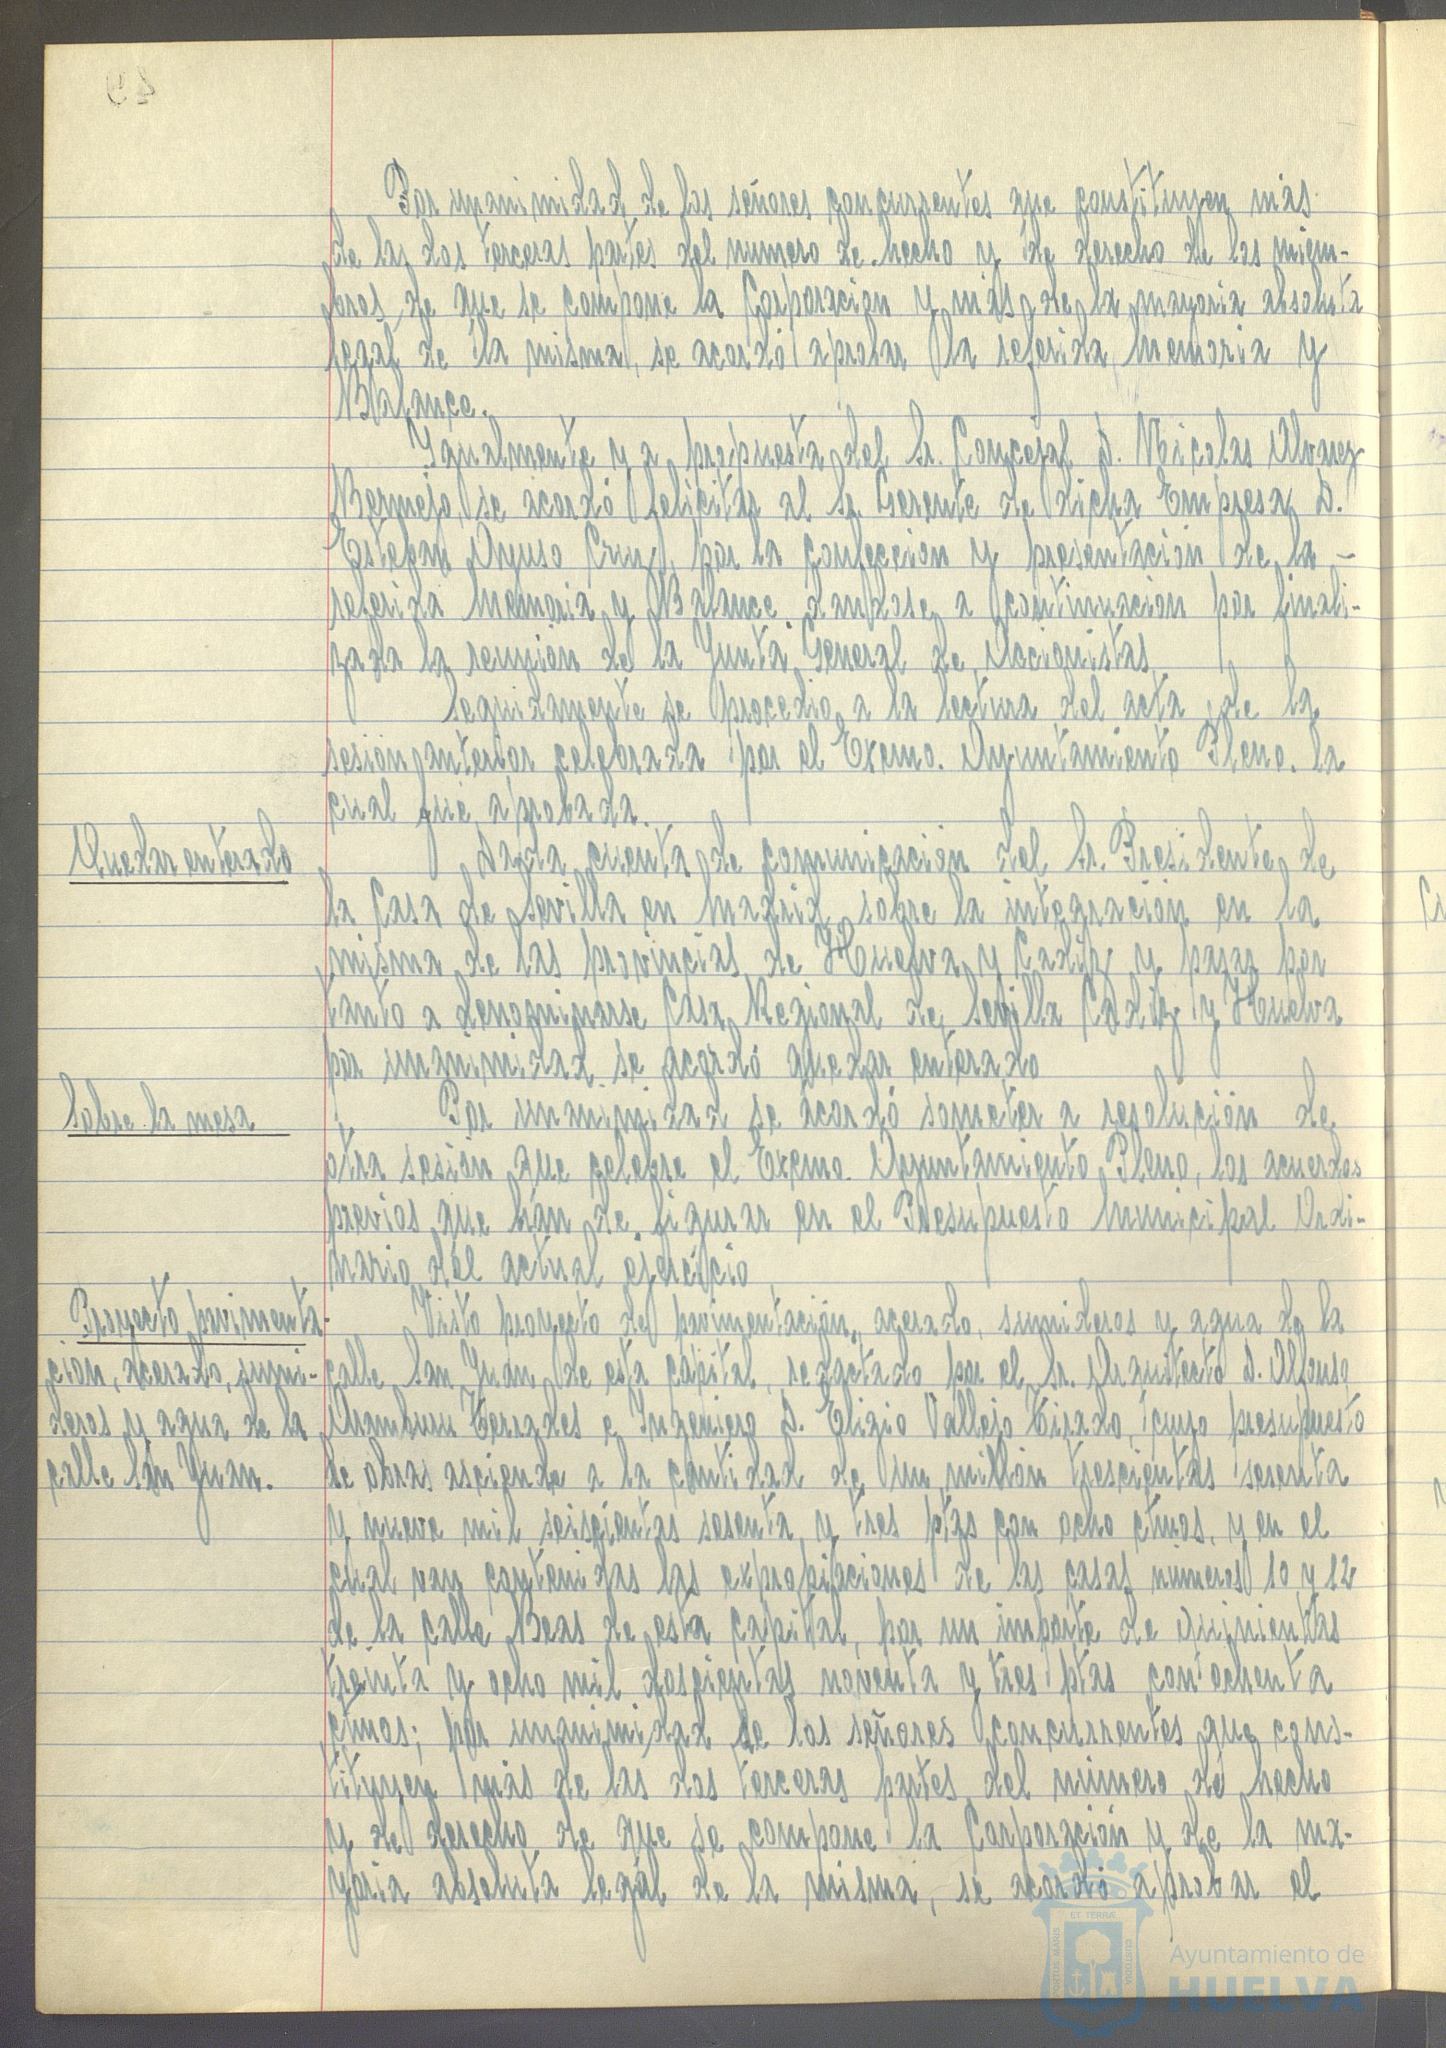 Por unanimidad de los señores concurrentes que constituyen más
de las dos terceras partes del numero de hecho y de derecho de los miem-
bros de que se compone la Corporación y más de la mayoria absoluta
legal de la misma, se acordó aprobar la referida Memoria y
Balance.
Igualmente y a propuesta del Sr. Concejal D. Nicolas Alvarez
Bermejo, se acordó felicitar al Sr. Gerente de dicha Empresa D.
Esteban Ayuso Cruz, por la confeccion y presentacion de la -
referida Memoria y Balance, dandose a continuacion por finali-
zada la reunion de la Junta General de Accionistas
Seguidamente se procedio a la lectura del acta de la
sesion anterior celebrada por el Excmo. Ayuntamiento Pleno. la
cual fué aprobada.
Quedar enterado
Dada cuenta de comunicación del Sr. Presidente de
la Casa de Sevilla en Madrid, sobre la integración en la
misma de las provincias de Huelva y Cadiz y pasar por
tanto a denominarse Casa Regional de Sevilla Cadiz y Huelva
por unanimidad se acordó quedar enterado
Sobre la mesa
Por unanimidad se acordó someter a resolución de
otra sesión que celebre el Excmo. Ayuntamiento Pleno, los acuerdos
previos que han de figurar en el Presupuesto Municipal Ordi-
nario del actual ejercicio
Proyecto pavimenta-
cion, acerado, sumi-
deros y agua de la
calle San Juan.
Visto proyecto de pavimentación, acerado, sumideros y agua de la
calle San Juan de esta capital, redactado por el Sr. Arquitecto D. Alfonso
Aramburu Terrades e Ingeniero D. Eligio Vallejo Tirado, cuyo presupuesto
de obras asciende a la cantidad de un millón trescientas sesenta
y nueve mil seiscientas sesenta y tres ptas con ocho ctmos, y en el
cual van contenidas las expropiaciones de las casas números 10 y 12
de la calle Beas de esta capital, por un importe de quinientas
treinta y ocho mil doscientas noventa y tres ptas con ochenta
ctmos; por unanimidad de los señores concurrentes que cons-
tituyen más de las dos terceras partes del número de hecho
y de derecho de que se compone la Corporación y de la ma-
yoria absoluta legal de la misma, se acordó aprobar el
PORTUS MARIS
ET TERRAE
CUSTODIA
Ayuntamiento de
HUELVA